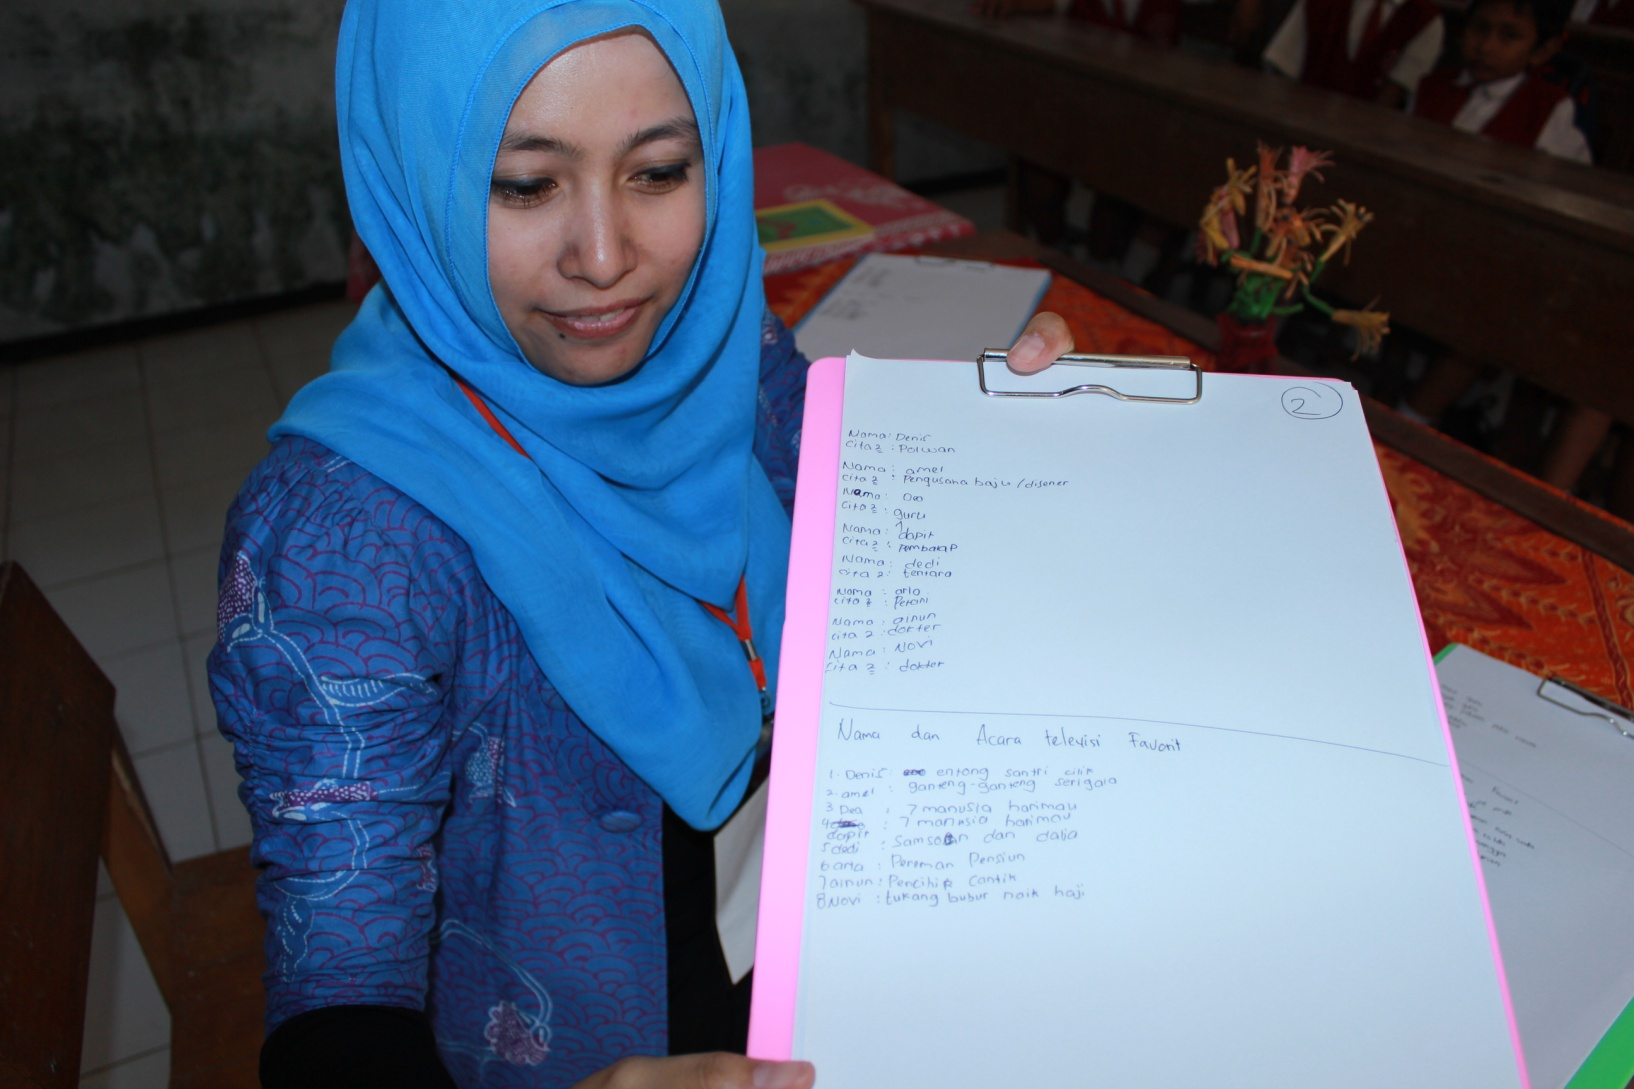 2
Nama: Denis
Cita2 : Polwan
Nama : amel
Cita 2 : Pengusaha baju / disener
Nama : Dea
Cita 2 : guru
Nama : dapit
Cita2 : Pembalap
Nama : dedi
cita 2 : tentara
Nama : aria
Cita 2 : Petani
Nama : ainun
cita 2 : dokter
Nama : Novi
Cita 2 : dokter
Nama dan Acara televisi Favorit
1. Denis : entong santri cilik
2. amel : ganteng-ganteng serigala
3 Dea : 7 manusia harimau
4 dapit : 7 manusia harimau
5 dedi : Samson dan dalia
6 aria : Pereman Pensiun
7 ainun : Pencihir Cantik
8 Novi : tukang bubur naik haji